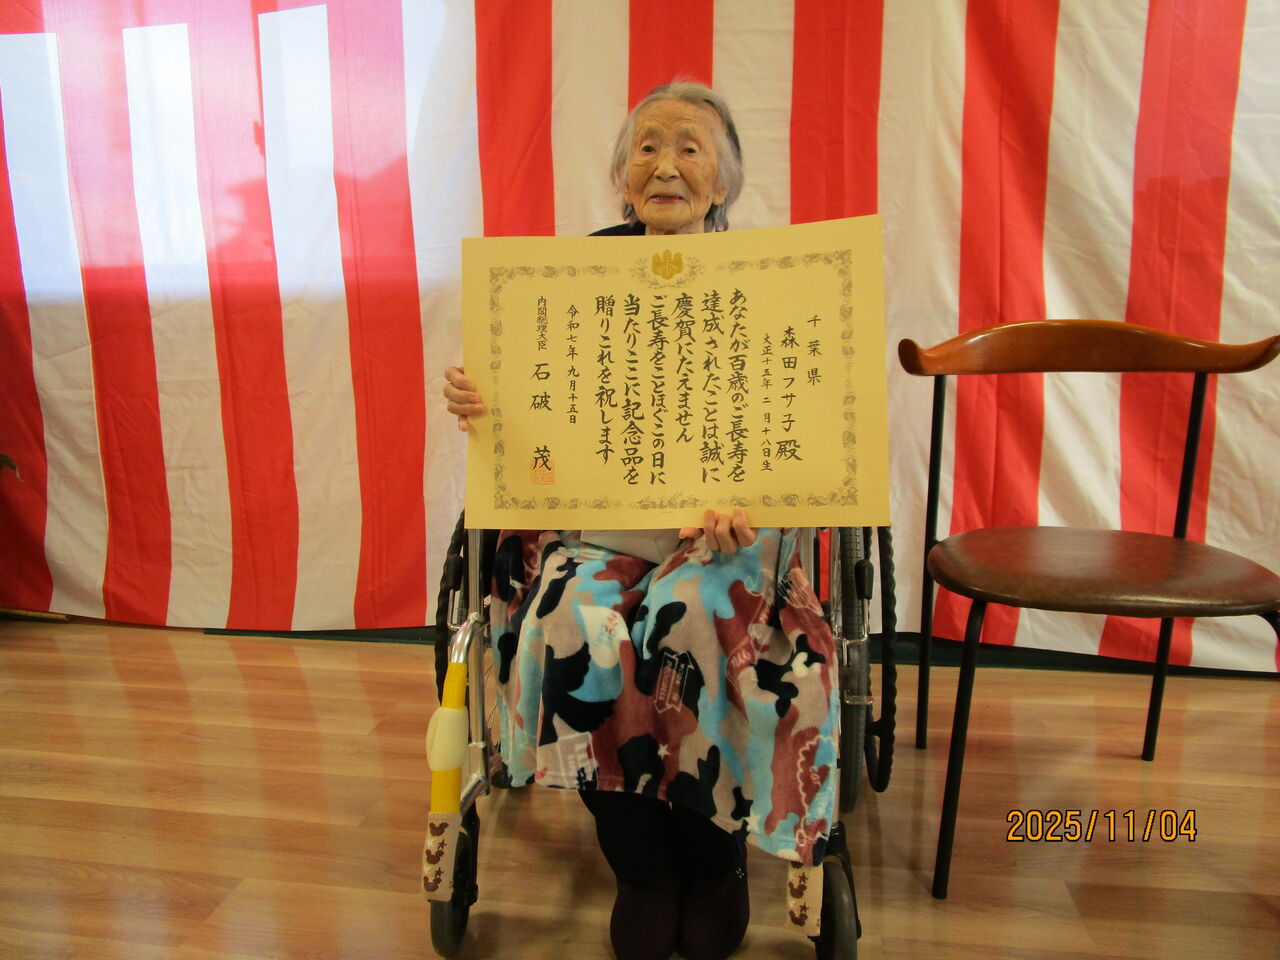 千葉県
森田フサ子殿
大正十五年二月十八日生
あなたが百歳のご長寿を
達成されたことは誠に
慶賀にたえません
ご長寿をことほぐこの日に
当たりここに記念品を
贈りこれを祝します
令和七年九月十五日
内閣総理大臣 石破 茂
2025/11/04